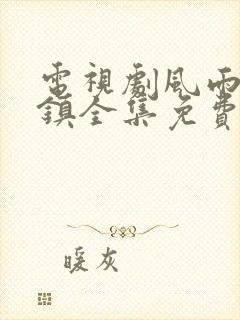 電視劇風雨
鎮全集免費
暖灰